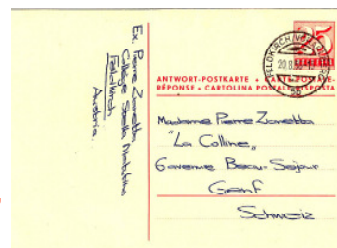 Ex. Pierre Zometta
Collège Stella Matutina
Feldkirch
Austria.
25
HELVETIA
FELDKIRCH
20.8.
ANTWORT-POSTKARTE • CARTE POSTALE-
RÉPONSE • CARTOLINA POSTALE RISPOSTA
Madame Pierre Zometta
"La Colline"
6 avenue Beau-Sejour
Genf
Schweiz